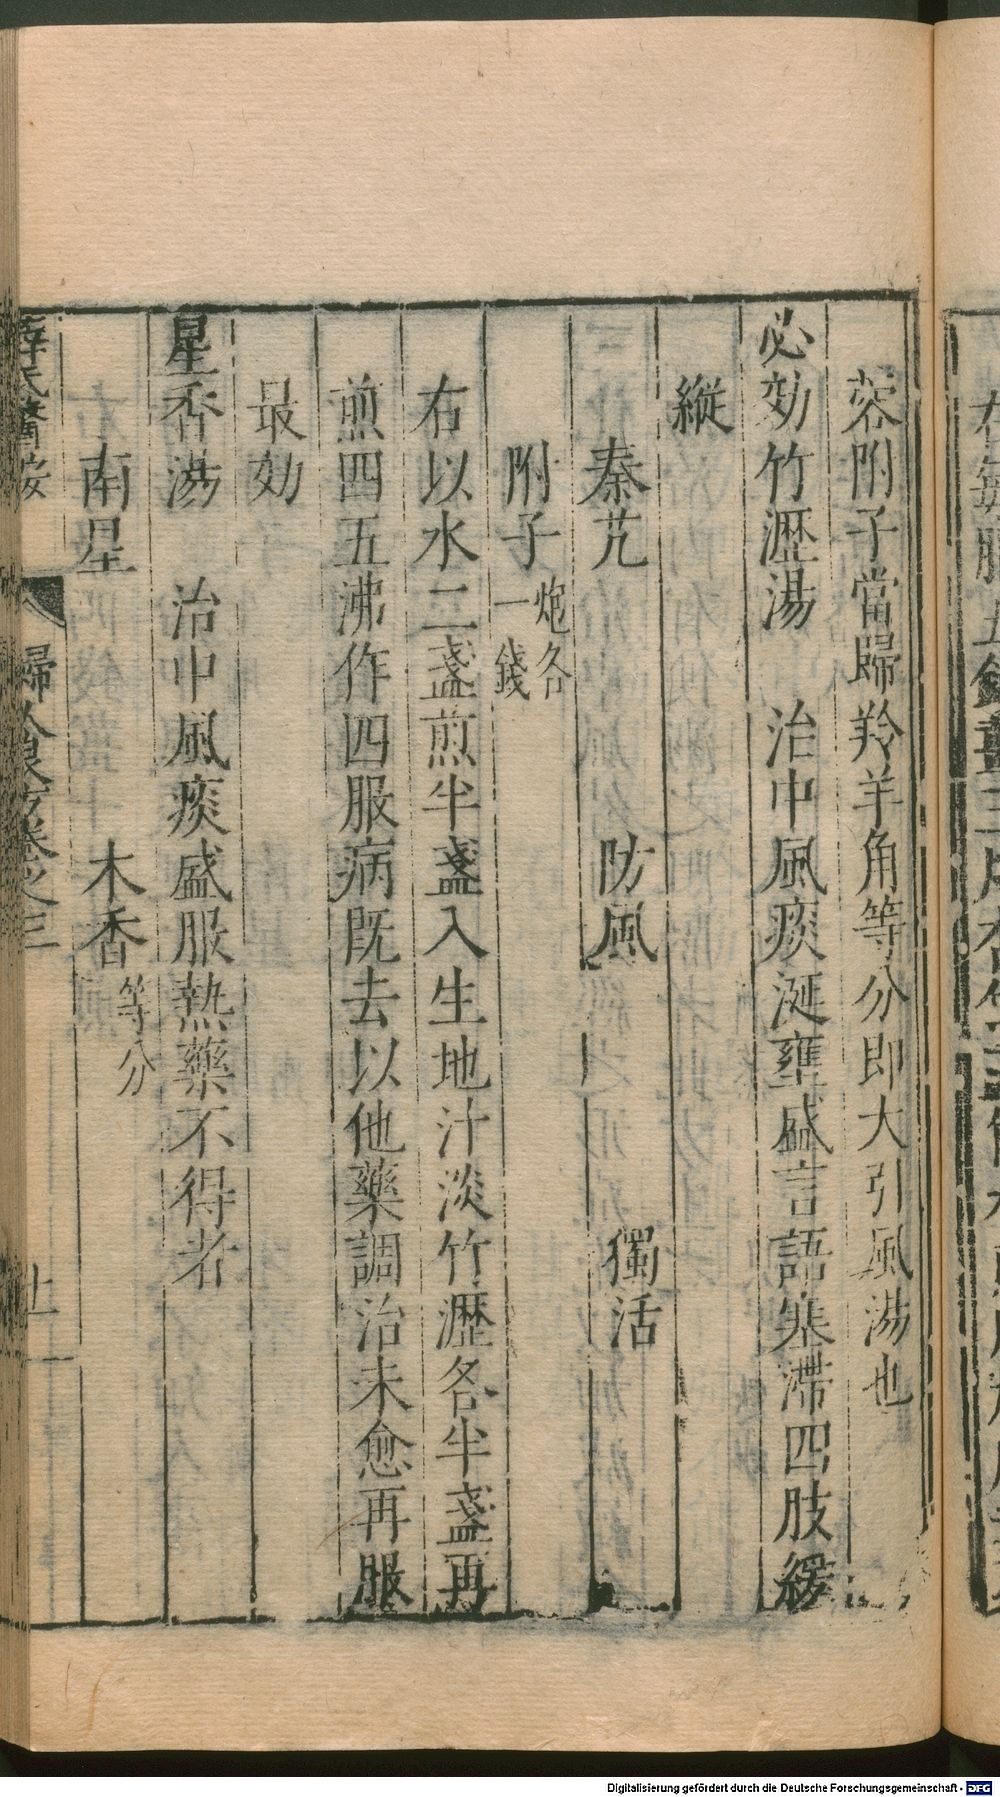 蓉附子當歸羚羊角等分即大引風湯也
必効竹瀝湯　治中風痰涎壅盛言語蹇滯四肢緩
縱
秦艽　防風　獨活
附子炮各一錢
右以水二盞煎半盞入生地汁淡竹瀝各半盞再
煎四五沸作四服病既去以他藥調治未愈再服
最効
星香湯　治中風痰盛服熱藥不得者
南星　木香等分
薛氏醫按　婦人良方卷之三
Digitalisierung gefördert durch die Deutsche Forschungsgemeinschaft - DFG